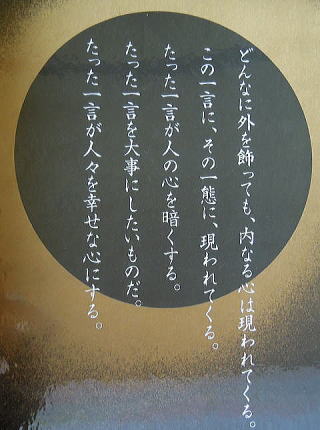 どんなに外を飾っても、内なる心は現われてくる。
この一言に、その一態に、現われてくる。
たった一言が人の心を暗くする。
たった一言を大事にしたいものだ。
たった一言が人々を幸せな心にする。